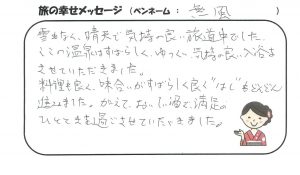 旅の幸せメッセージ（ペンネーム： 無風 ）
雲もなく、晴天で気持の良い旅道中でした。
ここの温泉はすばらしく、ゆっくり、気持の良い入浴を
させていただきました。
料理も良く、味合いがすばらしく良く"はし"もどんどん
進みました。かえて、おいしい酒で、満足の
ひとときを過ごさせていただきました。